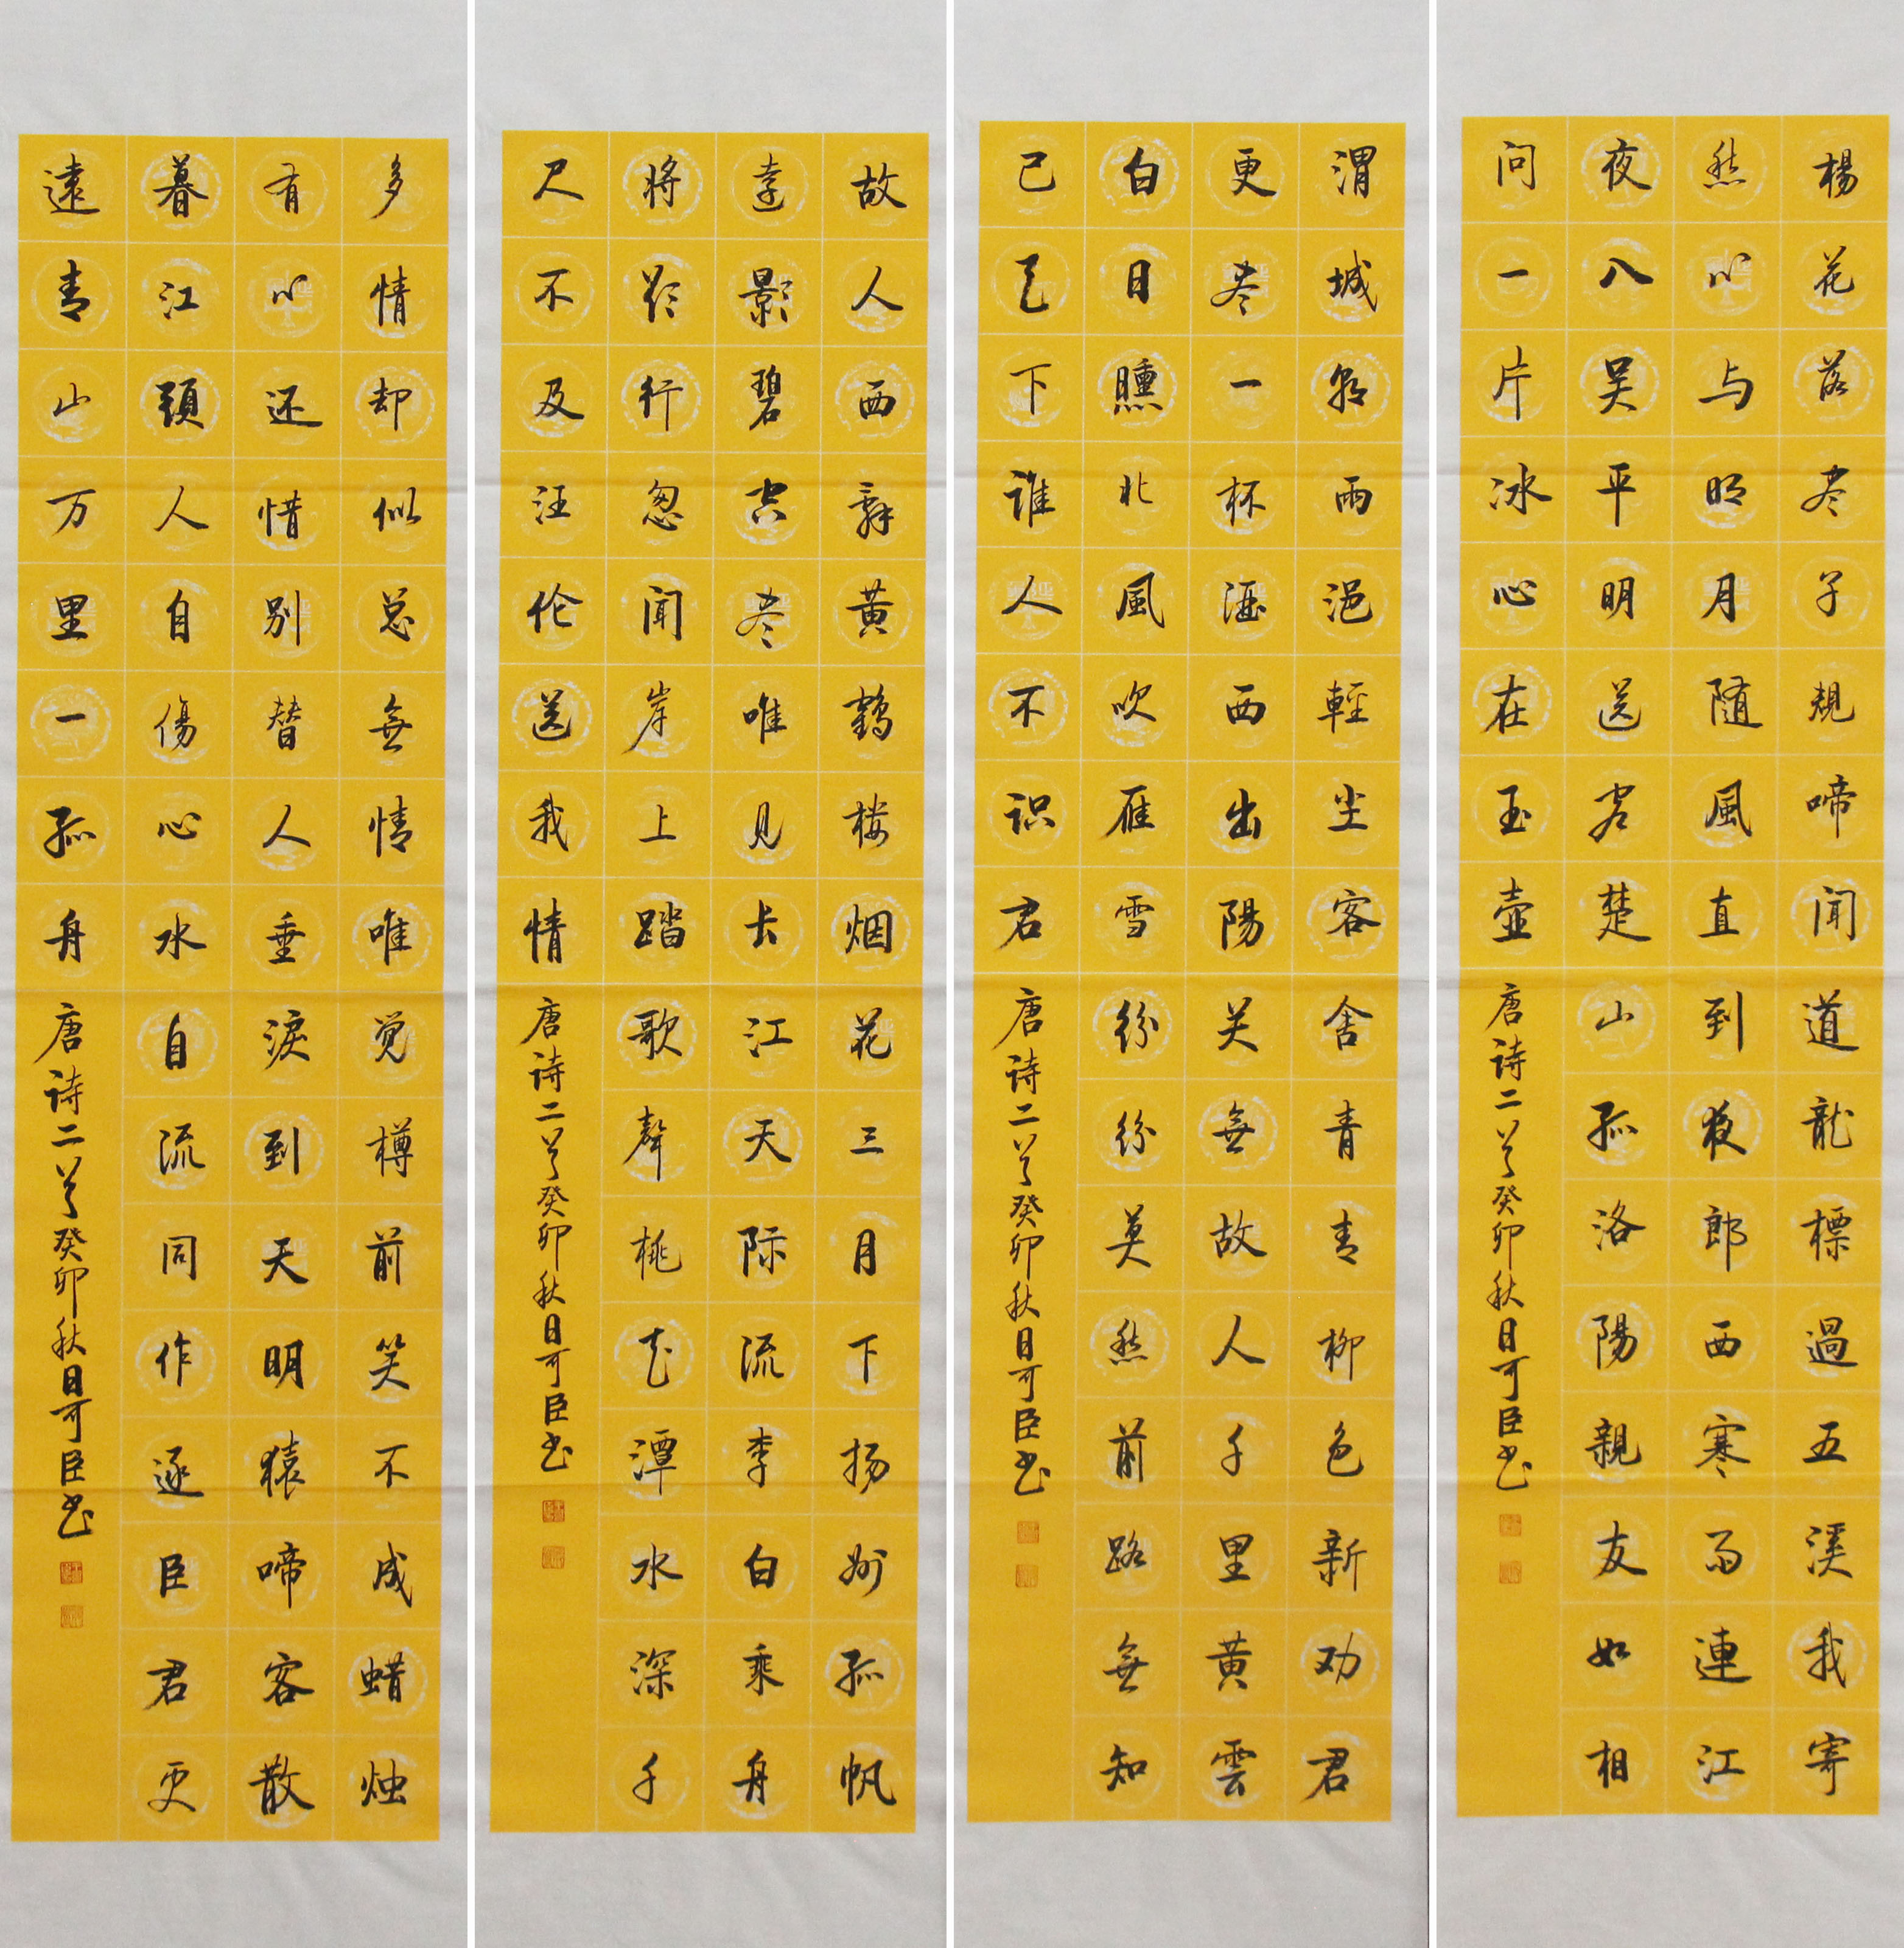 楊花落尽子規啼闻道龍標過五溪我寄
愁心与明月随風直到夜郎西寒雨連江
夜入吴平明送客楚山孤洛陽親友如相
问一片冰心在玉壶
唐诗二首癸卯秋日可臣书
渭城朝雨浥輕尘客舍青青柳色新劝君
更尽一杯酒西出陽关無故人千里黄雲
白日曛北風吹雁雪纷纷莫愁前路無知
己天下谁人不识君
唐诗二首癸卯秋日可臣书
故人西辞黄鹤楼烟花三月下扬州孤帆
遠影碧空尽唯见长江天际流李白乘舟
将欲行忽闻岸上踏歌聲桃花潭水深千
尺不及汪伦送我情
唐诗二首癸卯秋日可臣书
多情却似总無情唯觉樽前笑不成蜡烛
有心还惜别替人垂淚到天明猿啼客散
暮江頭人自傷心水自流同作逐臣君更
遠青山万里一孤舟
唐诗二首癸卯秋日可臣书